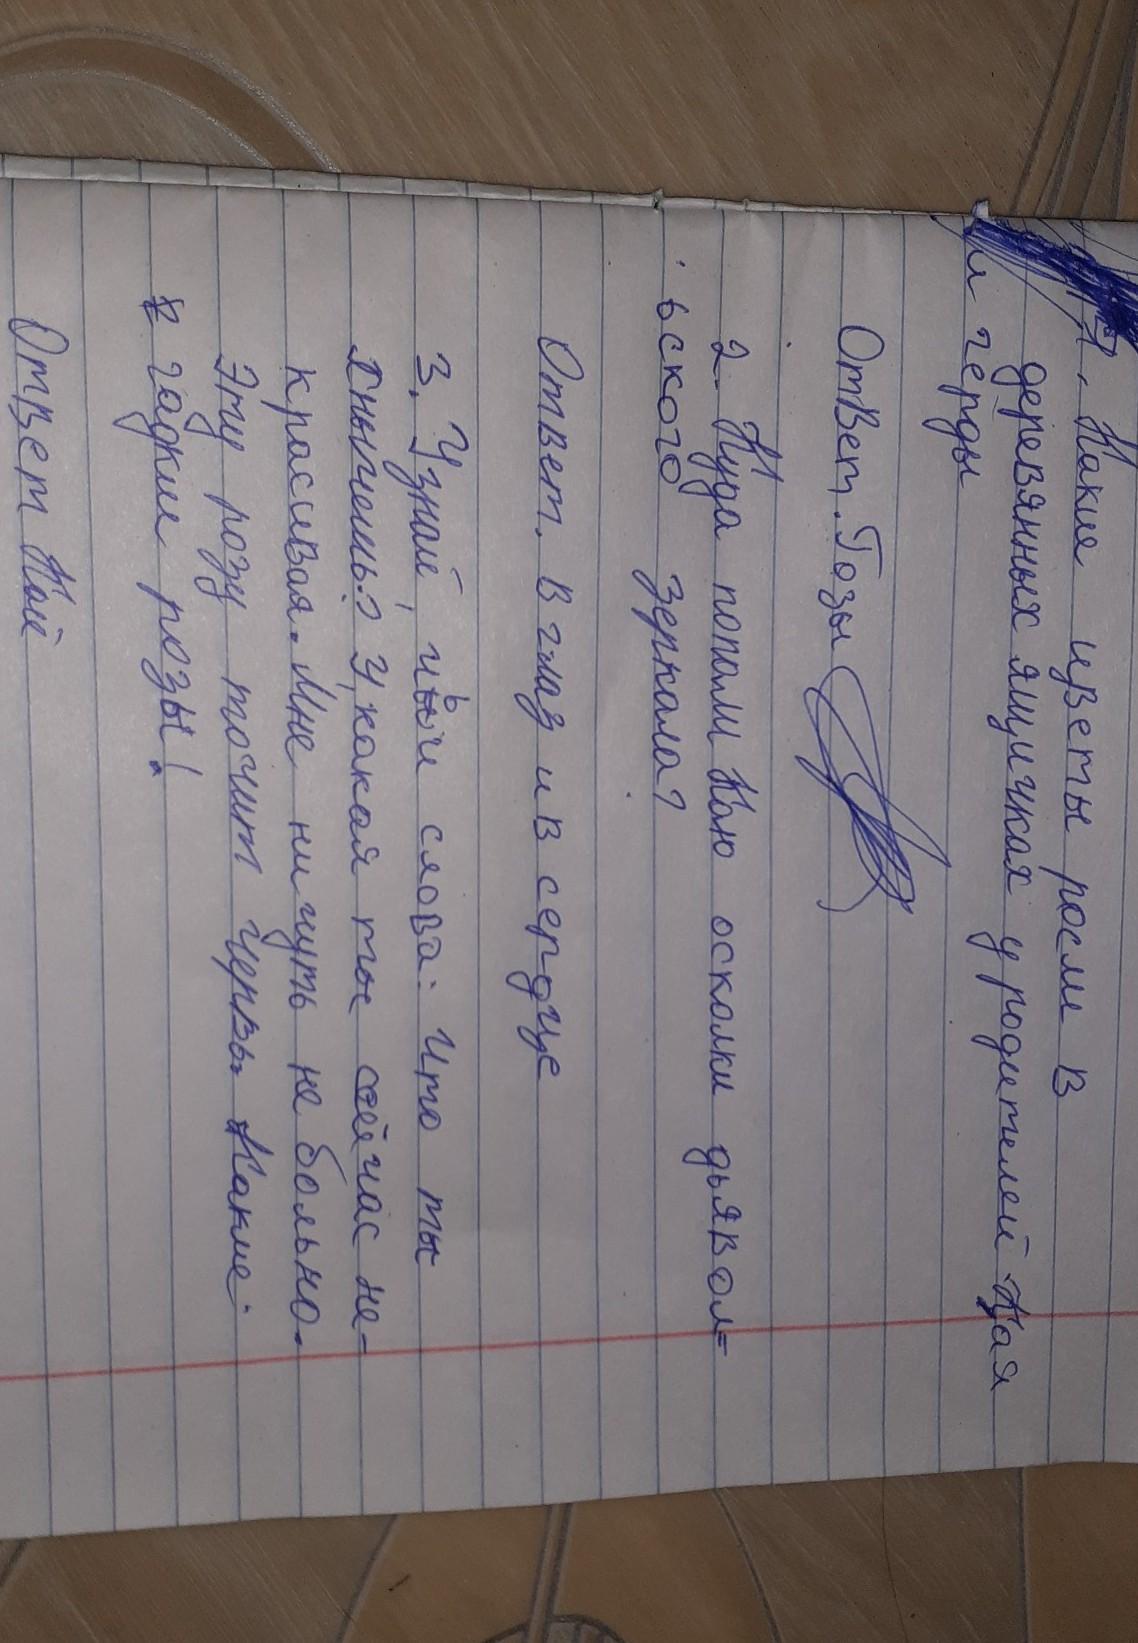 1. Какие цветы росли в
деревянных ящичках у родителей Кая
и герды
Ответ. Розы
2. Куда попали Каю осколки дьявол=
ьского зеркала?
Ответ. В глаз и в сердце
3. Узнай, чьи слова: Что ты
хнычешь? У, какая ты сейчас не-
красивая. Мне ничуть не больно.
Эту розу точит червь. Какие
гадкие розы!
Ответ Кай